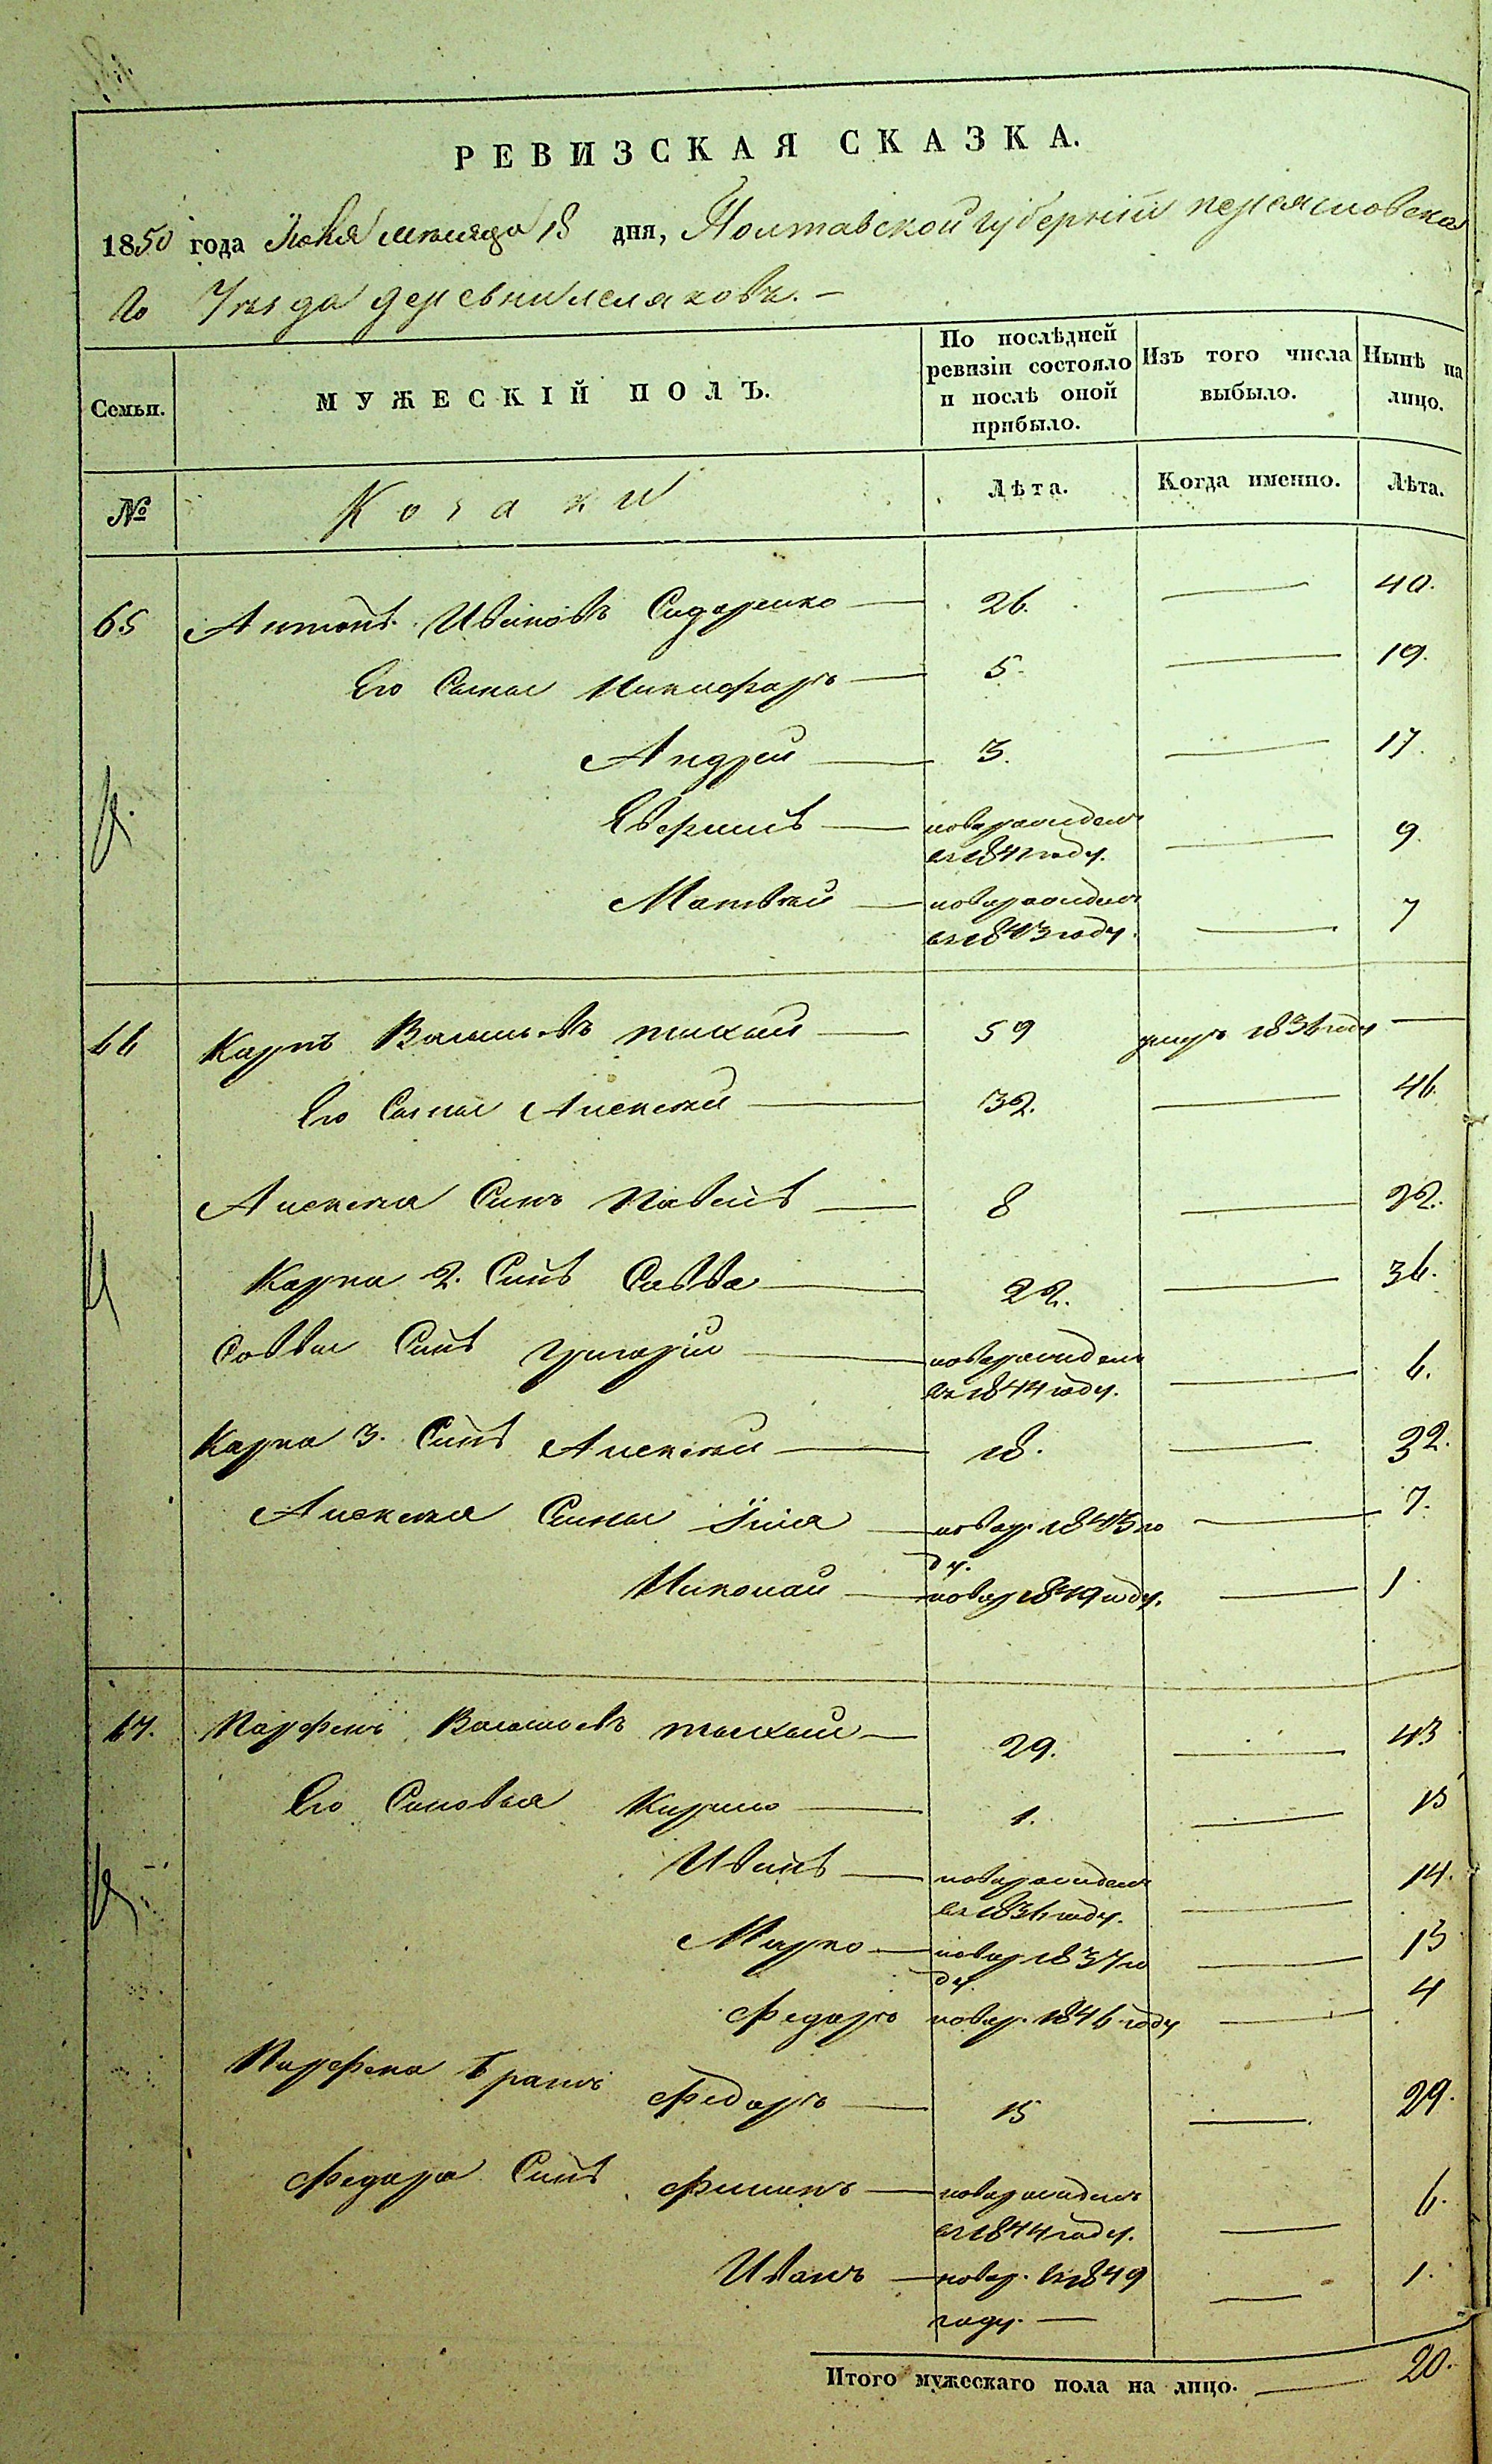 РЕВИЗСКАЯ СКАЗКА.
1850 года Июня месяца 18 дня, Полтавской губерніи переясловска
го Уезда деревни
Семьи. МУЖЕСКІЙ ПОЛЪ. По послѣдней ревизіи состояло и послѣ оной прибыло. Изъ того числа выбыло. Нынѣ на лицо.
№ Козаки Лѣта. Когда именно. Лѣта.
65 Антонъ Ивановъ Сидоренко — 26. — 40.
Его Сыны Никифоръ — 5. — 19.
Андрей — 3. — 17.
— новорожденъ — 9.
въ 1841 году.
Матвѣй — новорожденъ — 7
въ 1843 году.
66 Карпъ Васильевъ — 59 умеръ 1836 году —
Его Сыны Алексѣй — 32. — 46.
Алексѣя Синъ Павелъ — 8 — 22.
Карпа 2. Синъ Савва — 22. — 36.
Саввы Синъ Григорій — новорожденъ — 6.
въ 1844 году.
Карпа 3. Синъ Алексѣй — 18. — 32.
Алексѣя Сыны Илія — новор. 1843 го — 7.
ду.
Николай — новор 1849 году. — 1
67. Парфенъ Васильевъ — 29. — 43
Его Синовья Кирило — 1. — 15
Иванъ — новорожденъ — 14.
въ 1836 году.
Марко — новор 1837 го — 13
ду
Федоръ новор. 1846 году — 4
Парфена братъ Федоръ — 15 — 29.
Федора Синъ Филипъ — новорожденъ — 6.
въ 1844 году.
Иванъ — новор. въ 1849 — 1.
году. —
Итого мужескаго пола на лицо. — 20.